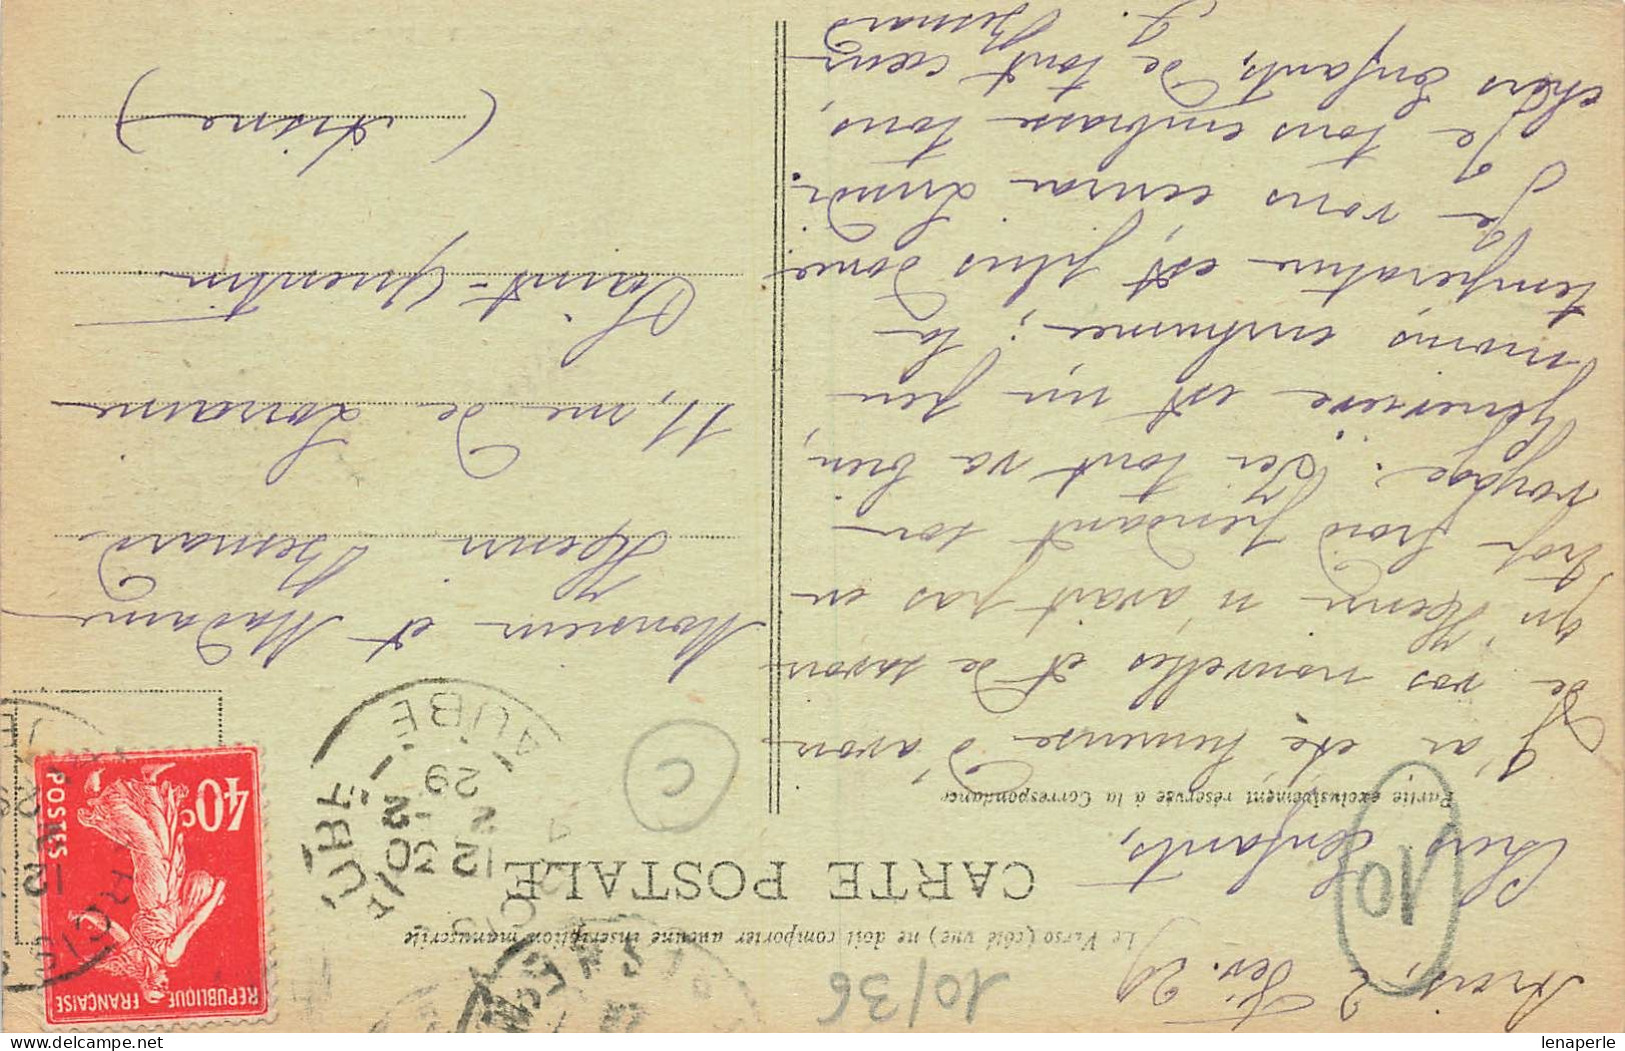 Le Verso (côté vue) ne doit comporter aucune inscription manuscrite
CARTE POSTALE
Partie exclusivement réservée à la Correspondance
2 Fév. 29
Chers Enfants,
J'ai été heureuse d'avoir
de vos nouvelles et de savoir
qu'Henri n'avait pas eu
trop froid pendant son
voyage. Ici tout va bien,
Geneviève est un peu
moins enrhumée; la
température est plus douce
Je vous écrirai Lundi.
Je vous embrasse tous,
chers Enfants, de tout cœur
G. Bernard
Monsieur et Madame
Henri Bernard
11, rue de Lorraine
Saint-Quentin
(Aisne)
40c
POSTES
REPUBLIQUE FRANÇAISE
12 30
2 - 2
29
AUBE
10
C
10/36
lenaperle